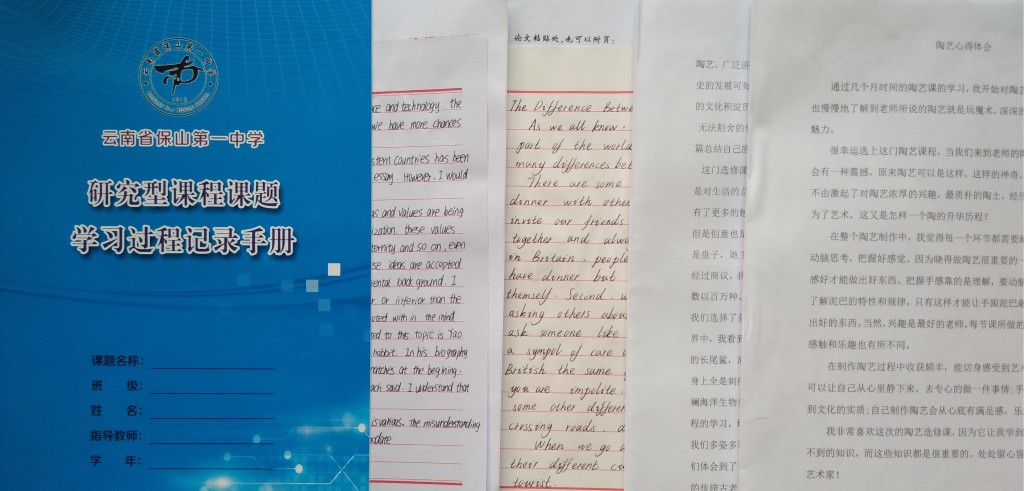 云南省保山第一中学
研究型课程课题
学习过程记录手册
课题名称：
班 级：
姓 名：
指导教师：
学 年：
and technology the
we have more chances
countries has been
essay. However, I would
and values are being
these values
and so on, even
ideas are accepted
background. I
or inferior than the
with in the mind
to this topic is Yao
In his biography
at the begining.
said. I understand that
various, the misunderstanding
论文粘贴处,也可以附页:
The Difference
As we all know,
part of the world
many differences
There are some
dinner with other
invite our friends
together and
in Britain, people
have dinner but
themself. Second,
asking others
ask someone like
a sympol of care
British the same
you are impolite.
some other
crossing roads.
When we go
their different
tourist.
陶艺，广泛讲
史的发展可
的文化积淀
无法割舍的
篇总结自己的
这门选修课
是对生活的
有了更多的
但是创意也
是盘子，她
经过商议，我
数以百万种，
我们选择了
界中，我看到
的长尾鲨，
身上全是刺
斓海洋生物
程的学习，
我们多姿多
们体会到了
的传统古老
陶艺心得体会
通过几个月时间的陶艺课的学习，我开始对陶
也慢慢地了解到老师所说的陶艺就是玩魔术，深深
魅力。
很幸运选上这门陶艺课程，当我们来到老师的
会有一种震撼，原来陶艺可以是这样，这样的神奇，
不由激起了对陶艺浓厚的兴趣，最质朴的陶土，经
为了艺术，这又是怎样一个陶的升华历程？
在整个陶艺制作中，我觉得每一个环节都需要
动脑思考，把握好感觉。因为晓得做陶艺很重要的一
感好才能做出好东西。把握手感靠的是理解，要动
了解泥巴的特性和规律。只有这样才能让手跟泥巴
出好的东西。当然，兴趣是最好的老师。每节课所做的
感触和乐趣也有所不同。
在制作陶艺过程中收获颇丰，能切身感受到艺
可以让自己从心里静下来，去专心的做一件事情；手
到文化的实质；自己制作陶艺会从心底有满足感，乐
我非常喜欢这次的陶艺选修课，因为它让我学到
不到的知识，而这些知识都是很重要的。处处留心皆
艺术家！